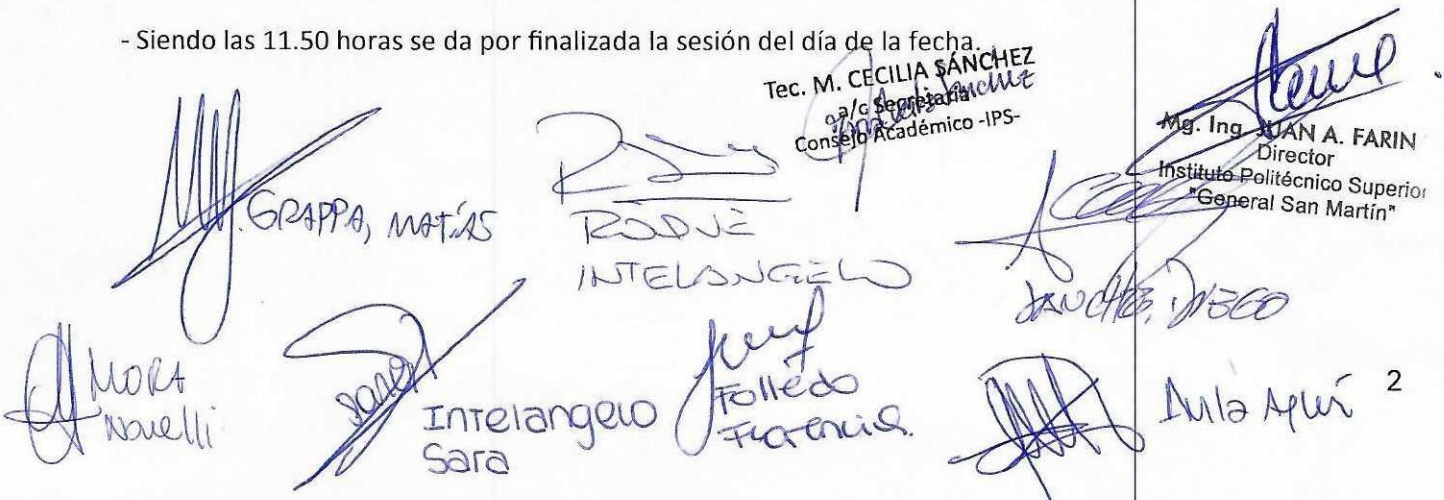 - Siendo las 11.50 horas se da por finalizada la sesión del día de la fecha.
Tec. M. CECILIA SÁNCHEZ
a/c Secretaria
Consejo Académico -IPS-
Mg. Ing. JUAN A. FARIN
Director
Instituto Politécnico Superior
"General San Martín"
GRAPPA, MATÍAS
ROQUE
INTELANGELO
SANCHEZ, DIEGO
MORA
Novelli
Intelangelo
Sara
Folledo
Florencia.
Avila
2